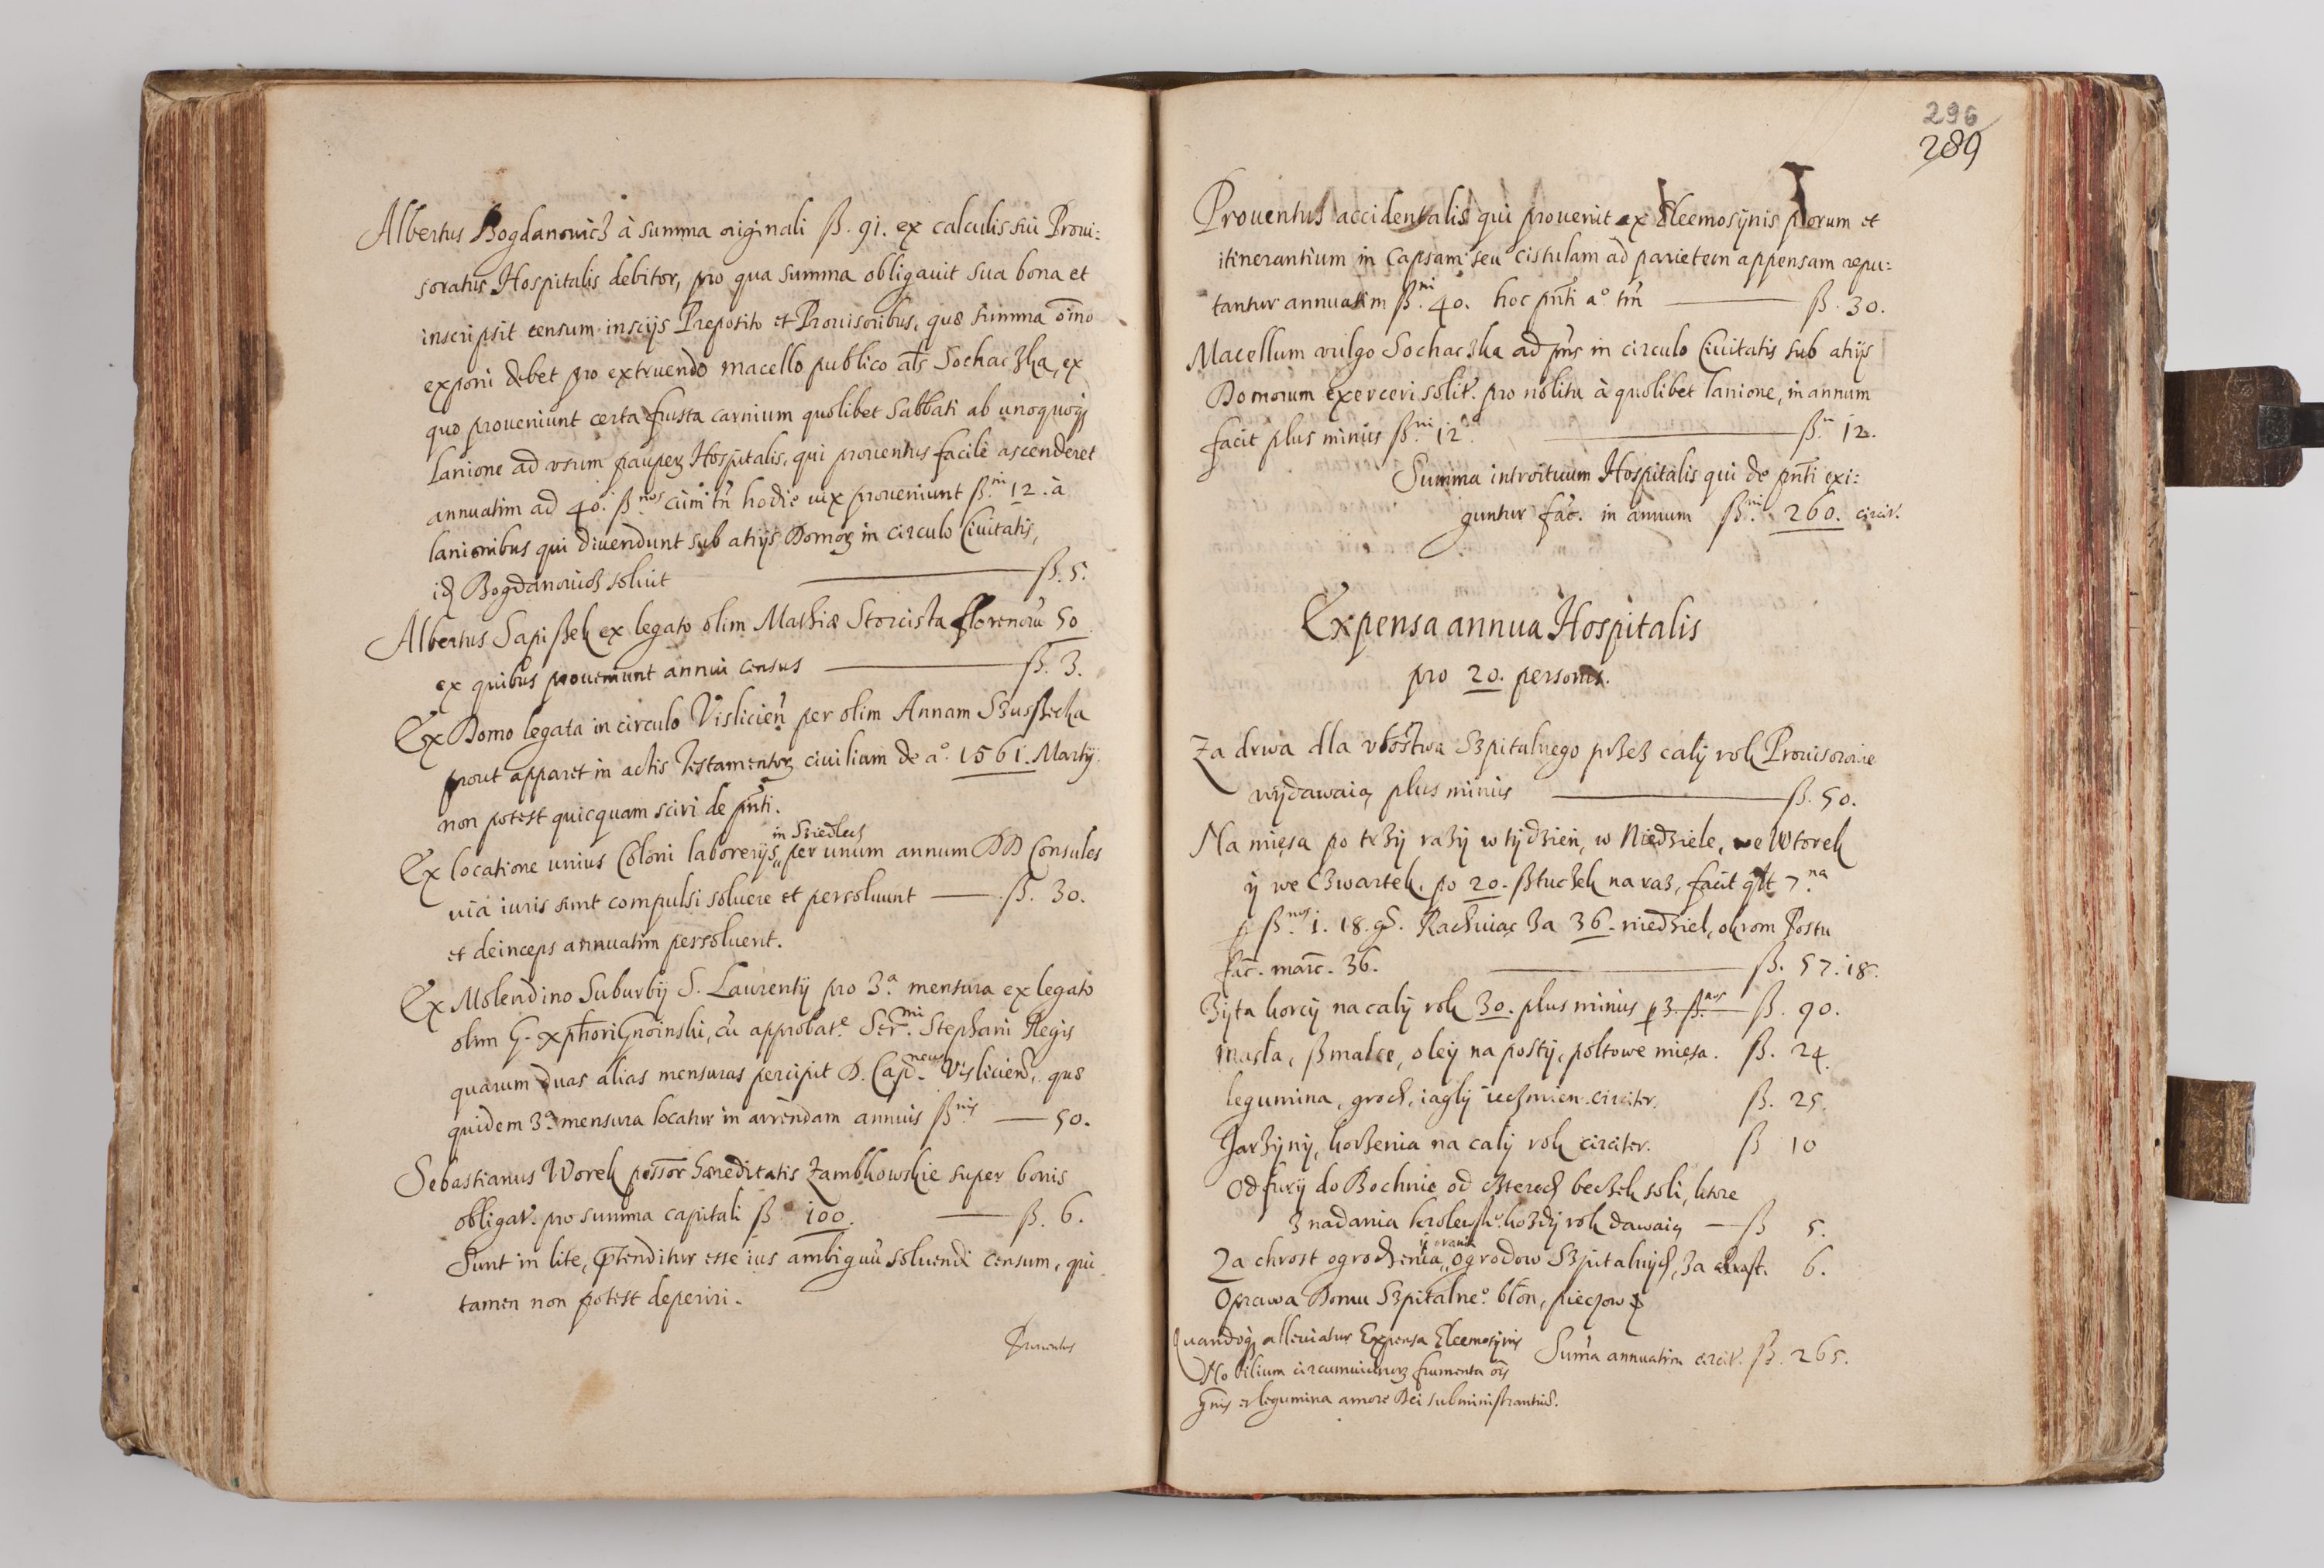 Albertus Bogdanowicz à summa originali ß. 91. ex calculis sui Proui=
soratus Hospitalis debitor, pro qua summa obligauit sua bona et
inscripsit censum insciÿs Preposito et Prouisoribus, quæ summa oīno
exponi debet pro extruendo macello publico als Sochaczka, ex
quo proueniunt certa frusta carnium quolibet Sabbati ab unoquoq
lanione ad vsum pauper Hospitalis, qui prouentus facilè ascenderet
annuatim ad 40. ß.nos cùm tn hodie uix proueniunt ß.ni 12. à
lanionibus qui diuendunt sub atrÿs Domor in circulo Ciuitatis,
id Bogdanowicz soluit ß. 5.
Albertus Sapißek ex legato olim Mathiæ Storcista florenoru 50
ex quibus proueniunt annui census ß. 3.
Ex Domo legata in circulo Vislicien per olim Annam
prout apparet in actis Testamentor ciuilium de a° 1561. Martÿ
non potest quicquam sciri de pnti.
in Siedlech
Ex locatione unius Coloni laboreriÿs per unum annum DD Consules
uia iuris sunt compulsi soluere et persoluunt ß. 30.
et deinceps annuatim persoluent.
Ex Molendino Suburbÿ S. Laurentÿ pro 3.a mensura ex legato
olim G. Xphori Gnoinski, cu approbat.e Ser.mi Stephani Regis
quarum duas alias mensuras percipit D. Cap.neus Visliciens. quæ
quidem 3.a mensura locatur in arrendam annuis ß.nis 50.
Sebastianus Worek possor hæreditatis Zambkowskie super bonis
obligat. pro summa capitali ß 100. ß. 6.
Sunt in lite, ptenditur esse ius ambiguu soluendi censum, qui
tamen non potest deperiri.
Prouentus
296
289
Prouentus accidentalis qui prouenit ex Eleemosÿnis piorum et
itinerantium in Capsam seu cistulam ad parietem appensam repu=
tantur annuatim ß.ni 40. hoc pnti a° tm ß. 30.
Macellum vulgo Sochaczka ad pns in circulo Ciuitatis sub atrÿs
Domorum exerceri solit. pro à quolibet lanione, in annum
facit plus minus ß.ni 12 ß.ni 12.
Summa introituum Hospitalis qui de pnti exi=
guntur fac. in annum ß.ni 260. circit.
Expensa annua Hospitalis
pro 20. personis.
Za drwa dla vbostwa Szpitalnego przez calÿ rok Prouisorowie
wÿdawaią plus minus ß. 50.
Na mięsa po trzÿ razÿ w tÿdzień, w Niedziele, we Wtorek
ÿ we Czwartek. po 20. sztuczek na raz, facit qlt 7.na
p ß.nos 1. 18. g. Rachuiąc za 36. niedziel, okrom Postu
fac. marc. 36. ß. 57. 18.
Zÿta korcÿ na calÿ rok 30. plus minus p 3. ß.nos ß. 90.
Masla, szmalce, oleÿ na postÿ, poltowe mięsa. ß. 24.
legumina, groch, iaglÿ ięczmien circiter. ß. 25.
Jarzÿnÿ, korzenia na calÿ rok circiter. ß 10
Od furÿ do Bochnie od czterech beczek soli, ktore
z nadania krolewsk° kozdÿ rok dawaią ß 5.
ÿ orania
Za chrost ogrodzenia ogrodow Szpitalnÿch, za chrost. 6.
Oprawa Domu Szpitalne° blon, piecow
Quandoq alleuiatur Expensa Eleemosÿnis
Nobilium circumuicinor frumenta ois
gnis et legumina amore Dei subministrantiu.
Suma annuatim circit. ß. 265.